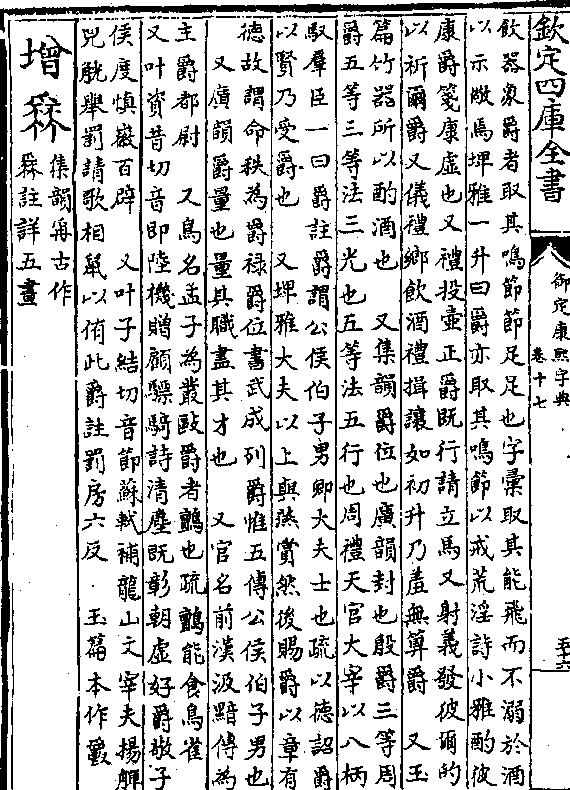 欽定四庫全書
御定康熙字典
卷十七
飲器象爵者取其鳴節節足足也字彙取其能飛而不溺於酒
以示儆焉埤雅一升曰爵亦取其鳴節以戒荒淫詩小雅酌彼
康爵箋康虛也又禮投壺正爵既行請立馬又射義發彼爾的
以祈爾爵又儀禮鄉飲酒禮揖讓如初升乃羞無算爵 又玉
篇竹器所以酌酒也 又集韻爵位也廣韻封也殷爵三等周
爵五等三等法三光也五等法五行也周禮天官大宰以八柄
馭羣臣一曰爵註爵謂公侯伯子男卿大夫士也疏以德詔爵
以賢乃受爵也 又埤雅大夫以上與燕賞然後賜爵以章有
德故謂命秩為爵祿爵位書武成列爵惟五傳公侯伯子男也
又廣韻爵量也量其職盡其才也 又官名前漢汲黯傳為
主爵都尉 又鳥名孟子為叢敺爵者鸇也疏鸇能食鳥雀
又叶資昔切音即陸機贈顧驃騎詩清塵既彰朝虛好爵敬子
侯度慎徽百辟 又叶子結切音節蘇軾補龍山文宰夫揚觶
兕觥舉罰請歌相鼠以侑此爵註罰房六反 玉篇本作𤔲
增 𤓷 集韻爯古作
𤓷註詳五畫